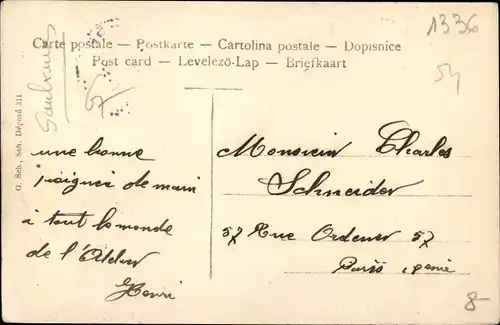 1336
54
Carte postale — Postkarte — Cartolina postale — Dopisnice
Post card — Levelező-Lap — Briefkaart
G. Sch., Sch. Déposé 311
une bonne
poignée de main
à tout le monde
de l'
Henri
Monsieur Charles
Schneider
57 Rue Ordener 57
Paris
8-